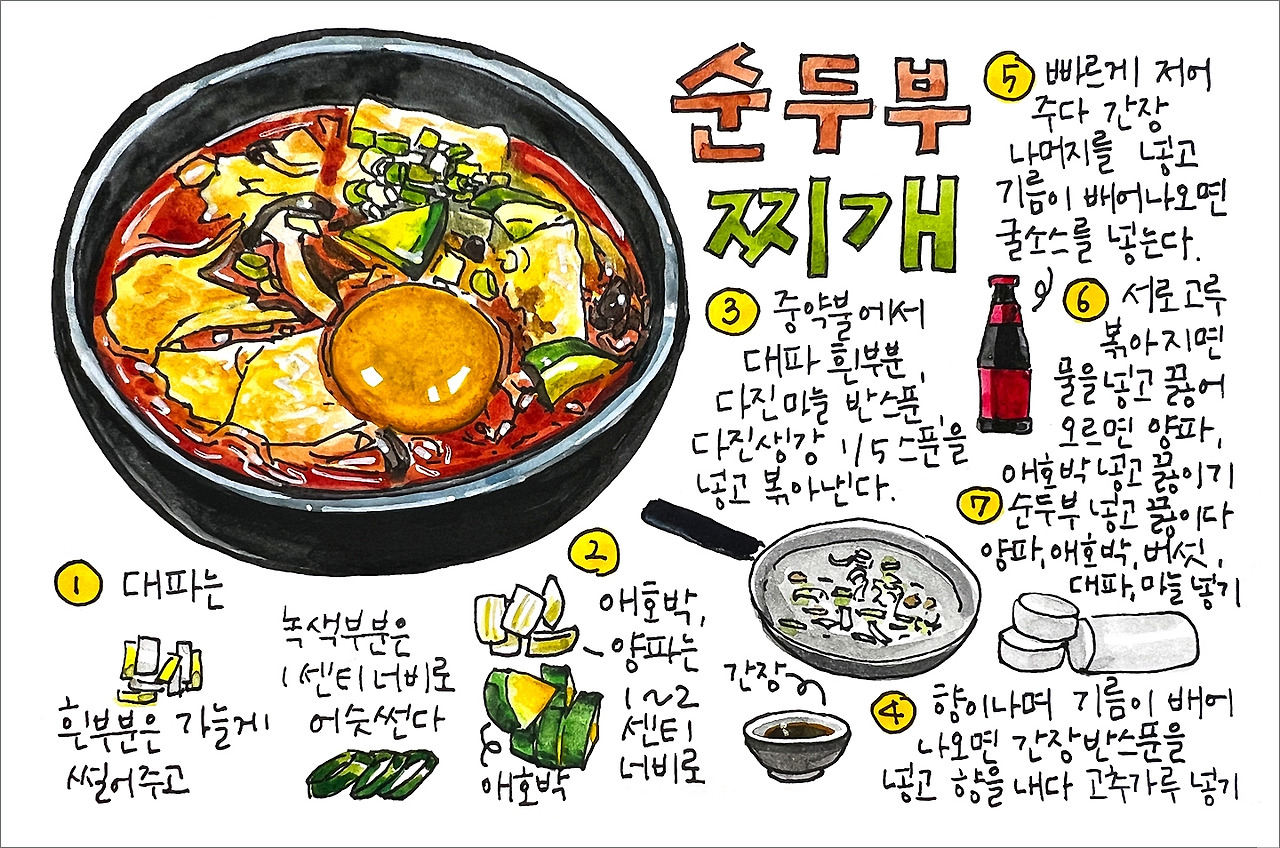 순두부
찌개
① 대파는
흰부분은 가늘게
썰어주고
녹색부분은
1센티너비로
어슷썬다
②
애호박,
양파는
1~2
센티
너비로
애호박
③ 중약불에서
대파 흰부분,
다진마늘 반스푼,
다진생강 1/5스푼을
넣고 볶아낸다.
간장
④ 향이나며 기름이 배어
나오면 간장반스푼을
넣고 향을내다 고추가루 넣기
⑤ 빠르게 저어
주다 간장
나머지를 넣고
기름이 배어나오면
굴소스를 넣는다.
⑥ 서로고루
볶아지면
물을넣고 끓어
오르면 양파,
애호박넣고 끓이기
⑦ 순두부넣고 끓이다
양파,애호박,버섯,
대파,마늘넣기